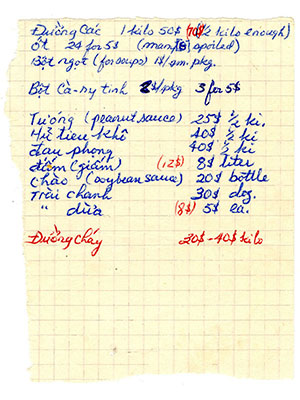 Đường Các 1 kilo 50$ (70$ ½ kilo enough)
Ớt 24 for 5$ (many spoiled)
Bột ngọt (for soups) 1$/sm. pkg.
Bột Cà-ry tinh 2$/pkg 3 for 5$
Tương (peanut sauce) 25$ ½ ki.
Hử tieu Khô 40$ ½ ki
đau phong 40$ ½ ki
dấm (giấm) (12$) 8$ liter
Chao (soybean sauce) 20$ bottle
Trái chanh 30$ doz.
" dừa (8$) 5$ ea.
Đường Cháy 20$-40$ kilo